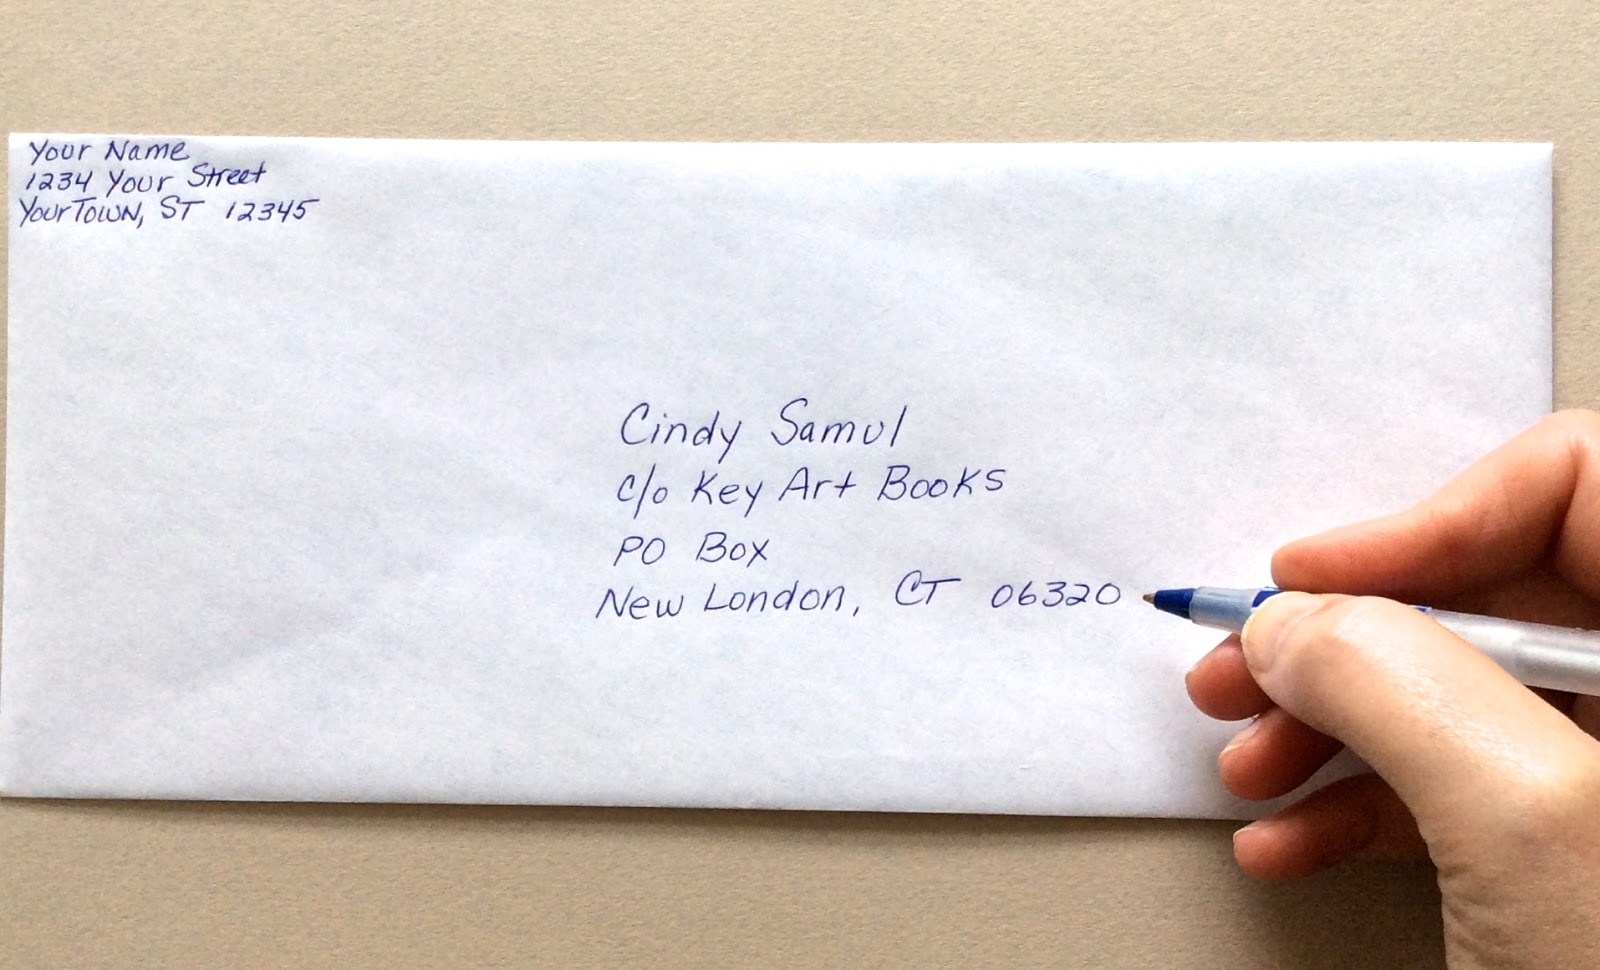 Your Name
1234 Your Street
YourTown, ST 12345
Cindy Samul
c/o Key Art Books
PO Box
New London, CT 06320